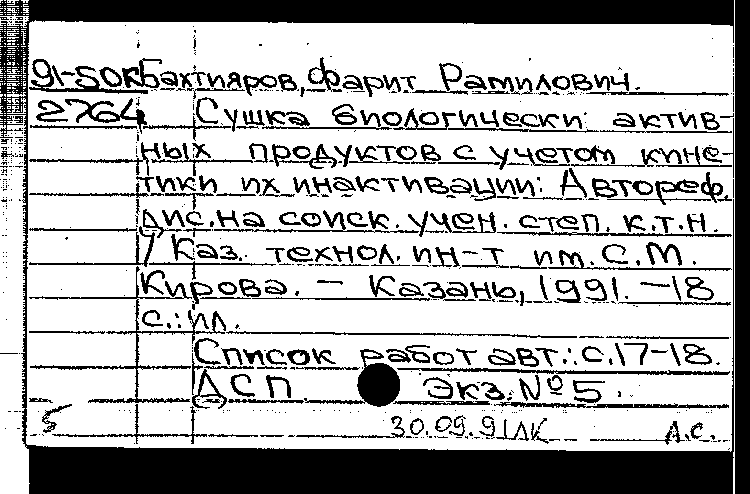 91-50к Бахтияров, Фарит Рамилович.
2764 Сушка биологически актив-
ных продуктов с учетом кине-
тики их инактивации: Автореф.
дис. на соиск. учен. степ. к.т.н.
/ Каз. технол. ин-т им. С.М.
Кирова. — Казань, 1991. — 18
с.: ил.
Список работ авт.: с. 17-18.
ДСП Экз. № 5.
5 30.09.91 ЛК А.С.